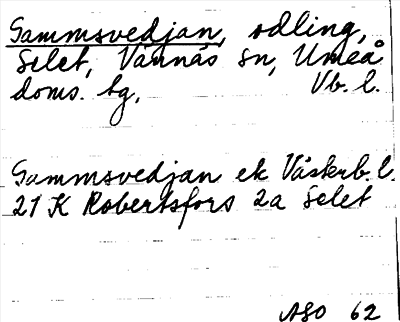 Sammsvedjan, odling,
Selet, Vännäs sn, Umeå
doms. tg, Vb. l.
Sammsvedjan ek Västerb. l.
21 K Robertsfors 2a Selet
ASO 62